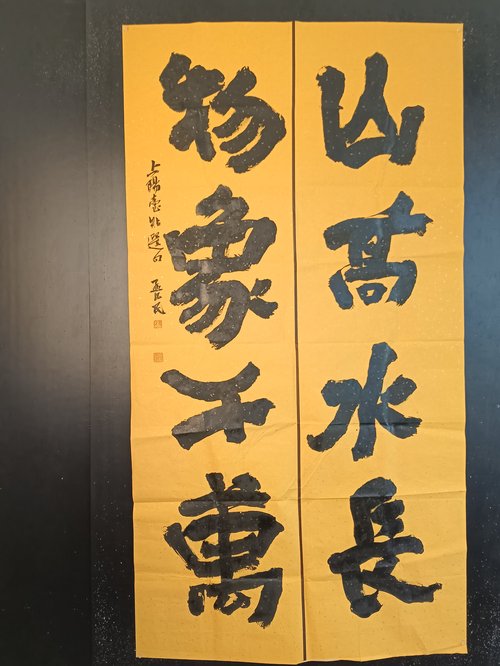 山高水長
物象千萬
上陽臺帖選句